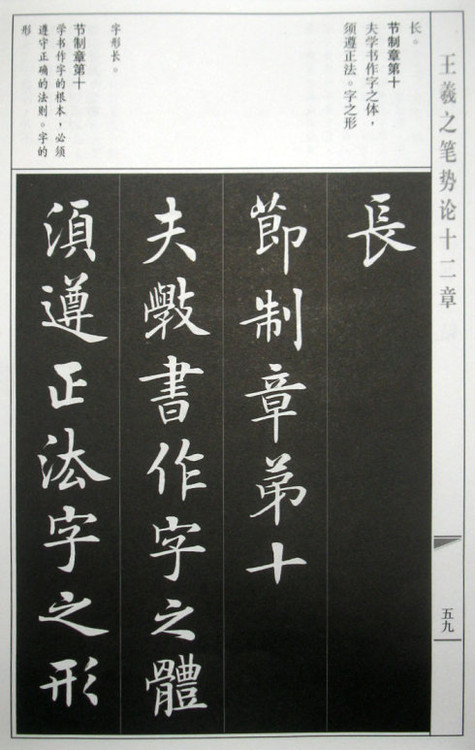 王羲之笔势论十二章
五九
长。
节制章第十
夫学书作字之体，
须遵正法。字之形
字形长。
节制章第十
学书作字的根本，必须
遵守正确的法则。字的
形
長
節制章第十
夫斅書作字之體
須遵正法字之形